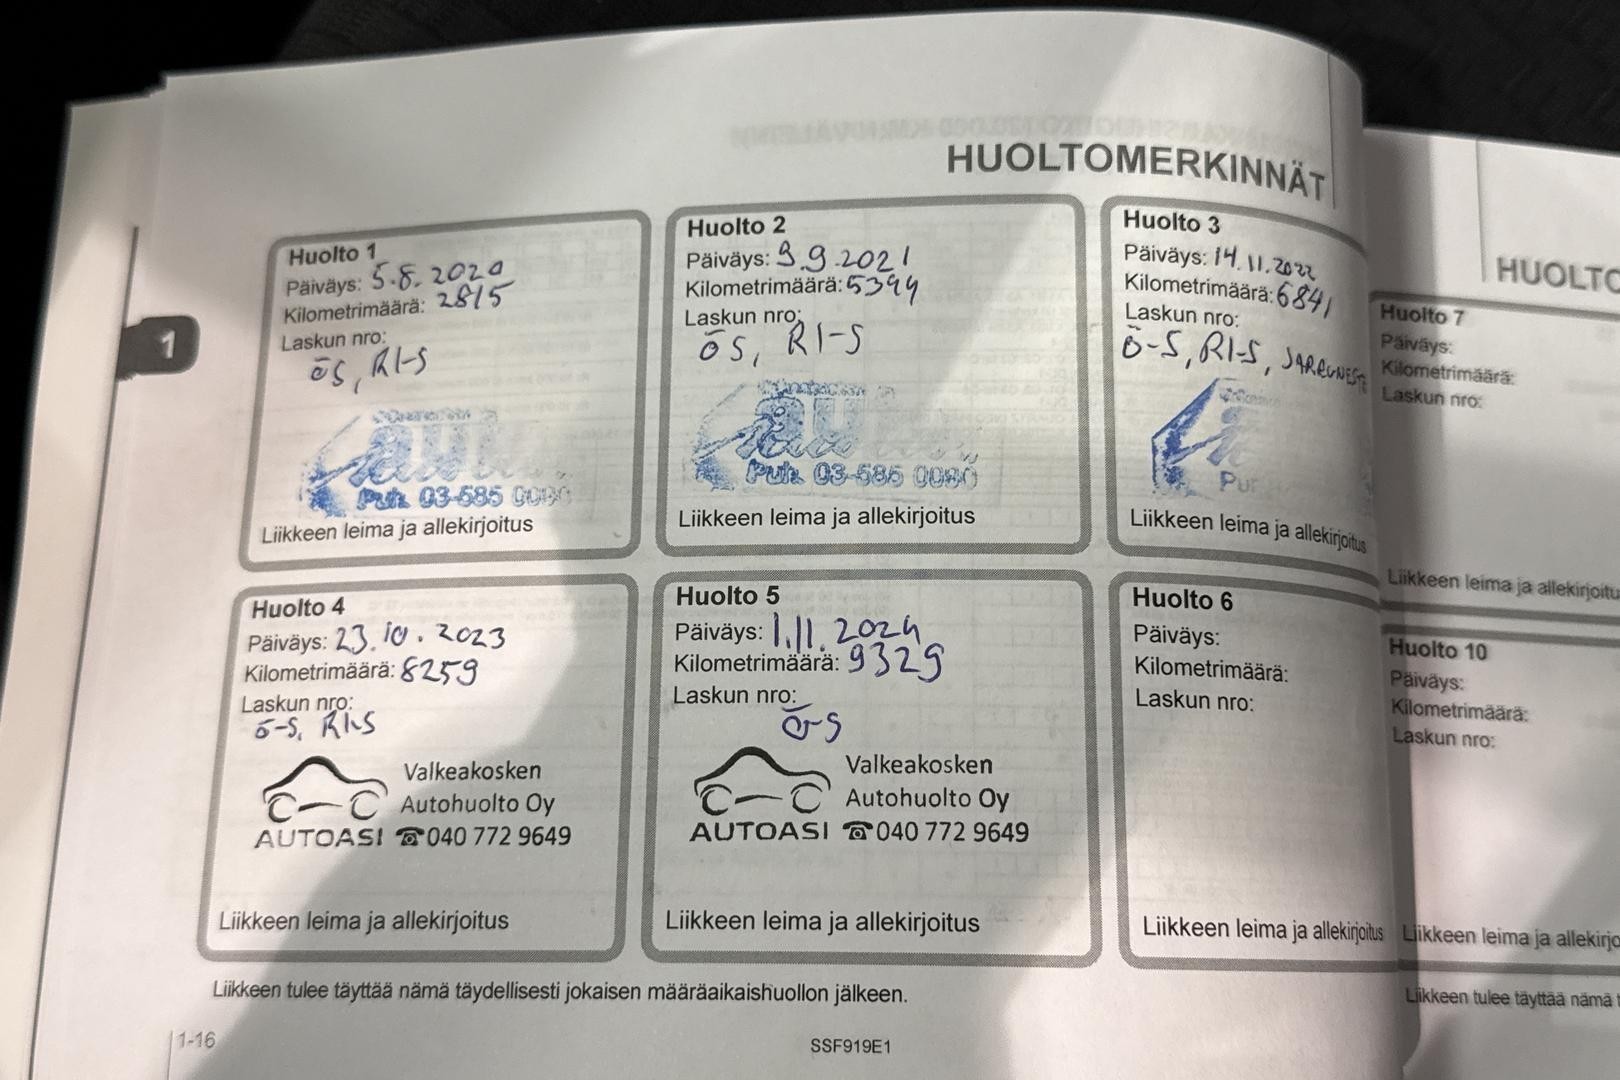 HUOLTOMERKINNÄT
Huolto 1
Päiväys: 5.8.2020
Kilometrimäärä: 2815
Laskun nro:
ÖS, R1-S
Puh. 03-585 0080
Liikkeen leima ja allekirjoitus
Huolto 2
Päiväys: 9.9.2021
Kilometrimäärä: 5394
Laskun nro:
ÖS, R1-S
Puh. 03-585 0080
Liikkeen leima ja allekirjoitus
Huolto 3
Päiväys: 14.11.2022
Kilometrimäärä: 6841
Laskun nro:
Ö-S, R1-S, JARRUNESTE
Liikkeen leima ja allekirjoitus
1
Huolto 4
Päiväys: 23.10.2023
Kilometrimäärä: 8259
Laskun nro:
Ö-S, R1-S
Valkeakosken
Autohuolto Oy
AUTOASI ☎040 772 9649
Liikkeen leima ja allekirjoitus
Huolto 5
Päiväys: 1.11.2024
Kilometrimäärä: 9329
Laskun nro:
Ö-S
Valkeakosken
Autohuolto Oy
AUTOASI ☎040 772 9649
Liikkeen leima ja allekirjoitus
Huolto 6
Päiväys:
Kilometrimäärä:
Laskun nro:
Liikkeen leima ja allekirjoitus
Liikkeen tulee täyttää nämä täydellisesti jokaisen määräaikaishuollon jälkeen.
1-16
SSF919E1
HUOLTO
Huolto 7
Päiväys:
Kilometrimäärä:
Laskun nro:
Liikkeen leima ja allekirjoitu
Huolto 10
Päiväys:
Kilometrimäärä:
Laskun nro:
Liikkeen leima ja allekirjo
Liikkeen tulee täyttää nämä